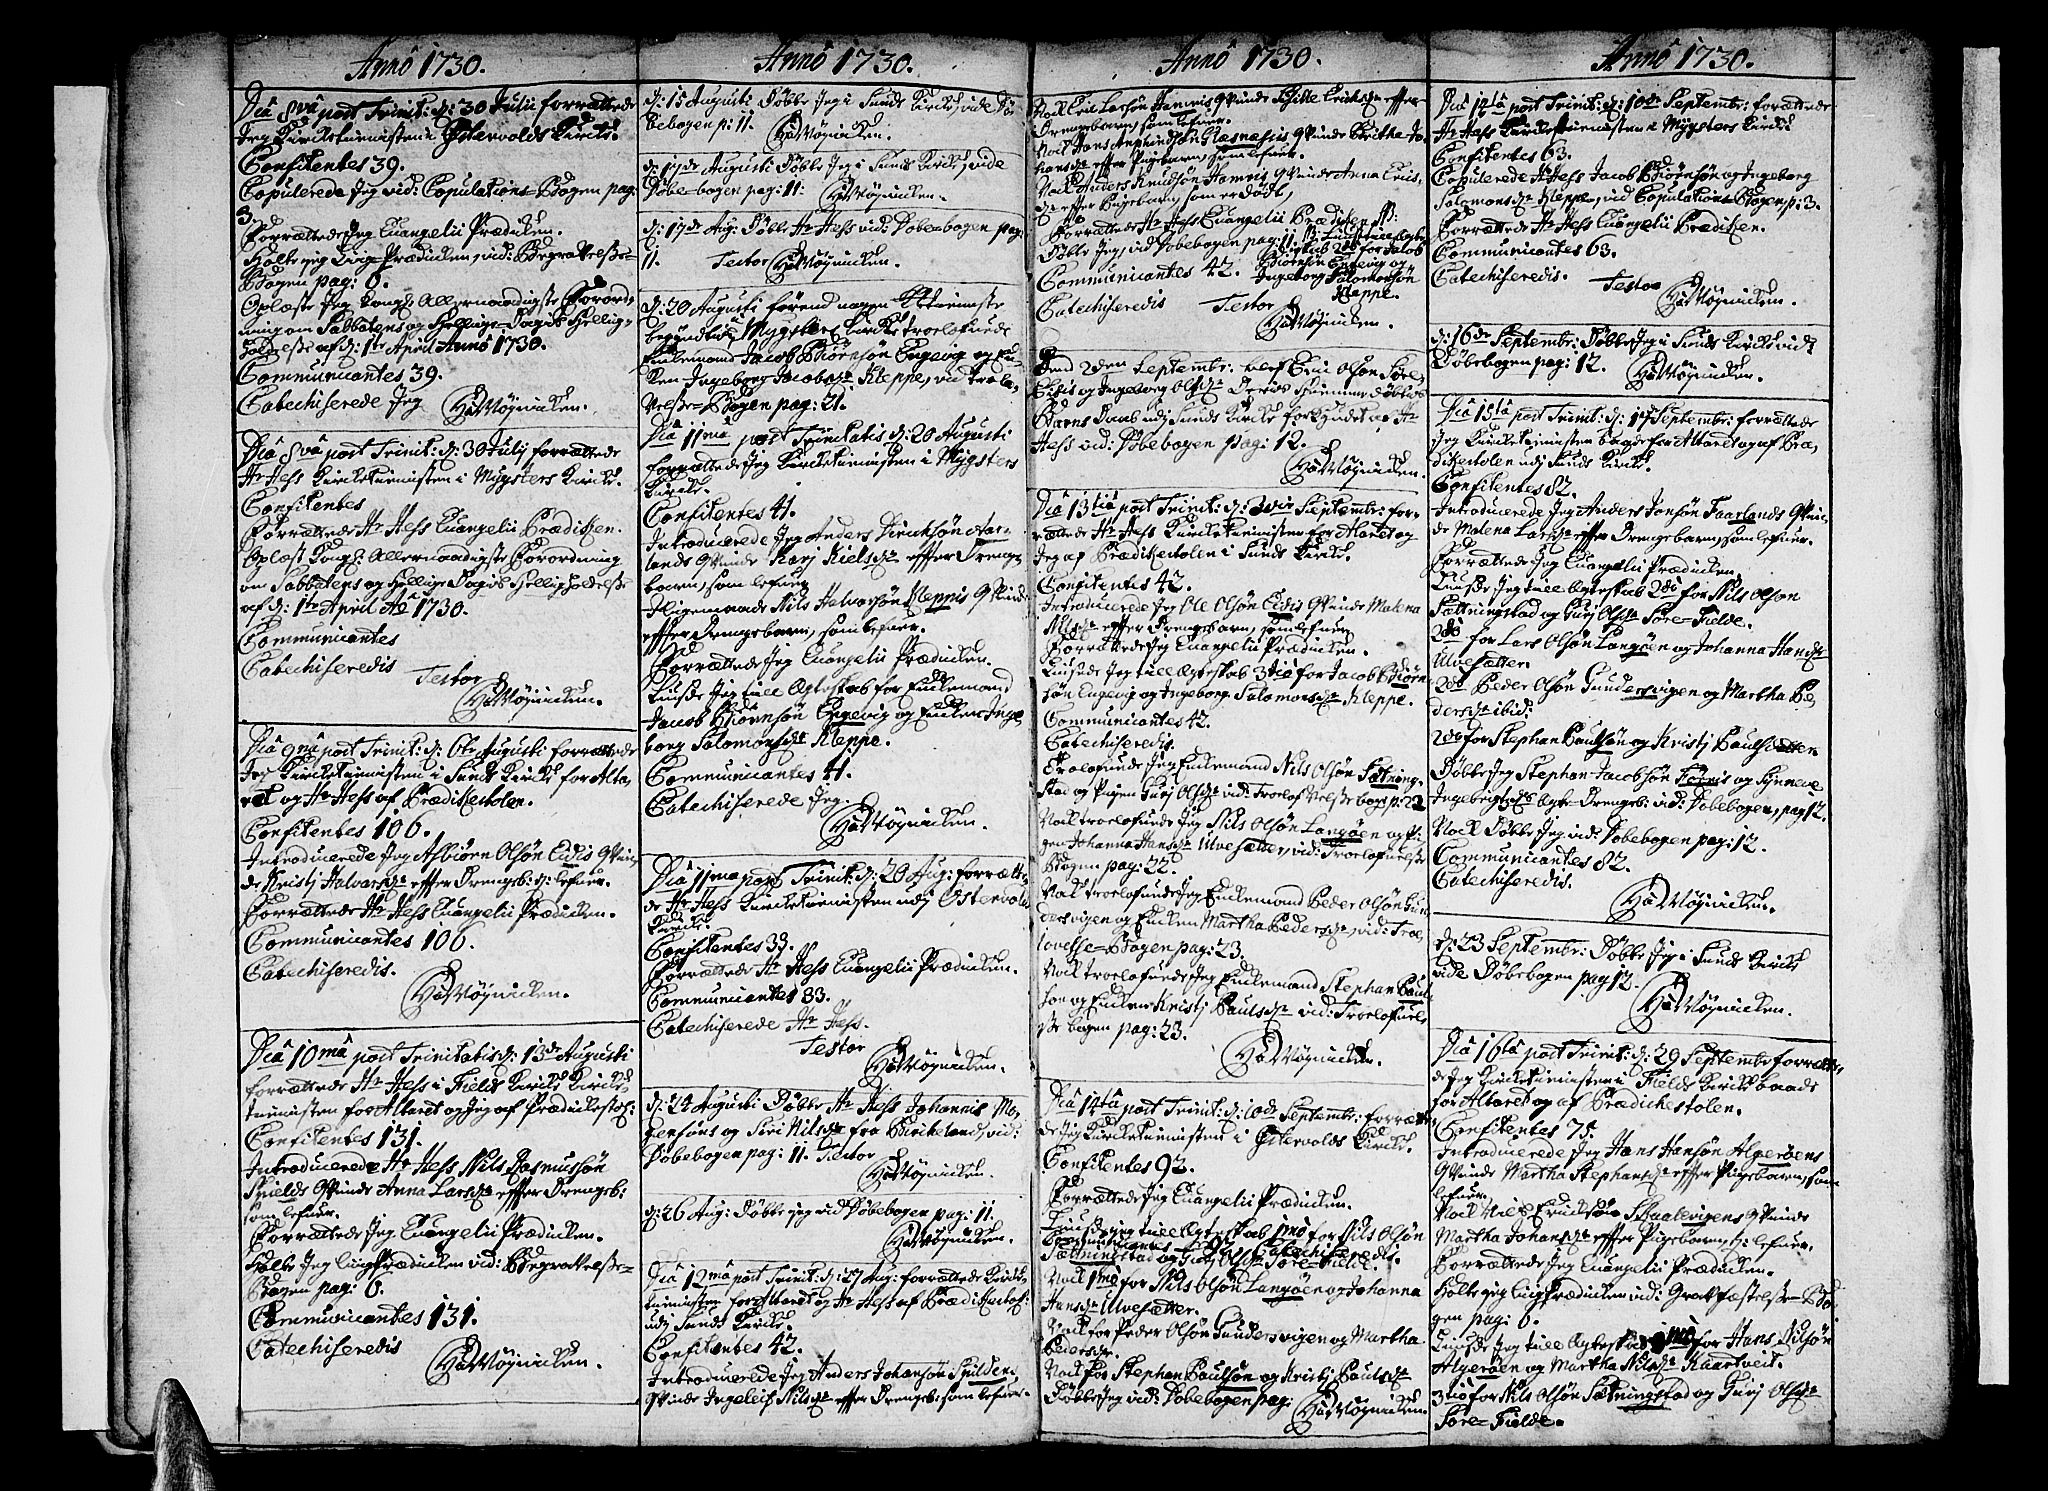 Anno 1730.
Dia 8va post Trinit: d: 30 Julii forrættede
Jeg Kircketienisten i Østervolds Kircke.
Confitentes 39.
Copulerede Jeg vid: Copulations Bogen pag:
3.
Forrættede Jeg Euangelii Prædicken.
Holte jeg Liig Prædicken, vid: Begravelsße-
Bogen pag: 6.
Oplæste Jeg Kongs Allernaadigste Forord-
ning om Sabbatens og Hellige-Dagis Hellig-
holdelse af d: 1te April Anno 1730.
Communicantes 39.
Catechiserede Jeg
Dia 8va post Trinit: d: 30 Julij forrættede
Hr Hess Kircketienisten i Mygsters Kircke.
Confitentes
Forrættede Hr Hess Euangelii Prædicken.
Oplæst Kongs Allernaadigste Forordning
om Sabbatens og Hellige Dagis Helligholdelse
af d: 1te April Ao 1730.
Communicantes
Catechiseredis
Testor
Dia 9na post Trinit: d: 6te Augusti forrættede
Jeg Kircketienisten i Sunds Kircke for Alta-
ret og Hr Hess af Prædickestolen.
Confitentes 106.
Introducerede Jeg Asbiørn Olsøn Eidis Qvin-
de Kristj Halvorsdr effter Drengeb: d: lefuer.
Forrættede Hr Hess Euangelii Prædicken.
Communicantes 106.
Catechiseredis.
Dia 10ma post Trinitatis d: 13de Augusti
forrættede Hr Hess i Fields Kircke Kircke-
tienisten for Altaret og Jeg af Prædickestol:
Confitentes 131.
Introducerede Hr Hess Nils Rasmussøn
Skields Qvinde Anna Larsdr effter Drengeb:
som lefuer.
Forrættede Jeg Euangelii Prædicken.
Holte Jeg Liig Prædicken vid: Begravelsße-
Bogen pag: 6.
Communicantes 131.
Catechiseredis
Anno 1730.
d: 15 Augusti Døbbte Jeg i Sunds Kircke, vide Dø-
bebogen p: 11.
d: 17de Augusti Døbbte Jeg i Sunds Kircke, vide
Døbe-bogen pag: 11.
d: 17de Aug: Døbbte Hr Hess vid: Døbe-bogen pag:
11. Testor
d: 20 Augusti førend nogen Kircketienniste
begyndtis i Mygsters Kircke troelofuede
Enckemand Jacob Biørnsøn Engevig og En-
cken Ingeborg Jacobsdr Kleppe, vid trole-
velsße-Bogen pag: 21.
Dia 11ma post Trinitatis d: 20 Augusti
forrættede Jeg Kircketienisten i Mygsters
Kircke.
Confitentes 41.
Introducerede Jeg Anders
lands Qvinde Karj Nielsdr effter Drenge
barn, som lefuer
Iligemaade Nils Halvorsøn Kleppis Qvinde
effter Drengebarn, som lefuer.
Forrættede Jeg Euangelii Prædicken.
Liusde Jeg till Ægteskab for Enckemand
Jacob Biørnsøn Engevig og Encken Inge-
borg Salomonsdr Kleppe.
Communicantes 41.
Catechiserede Jeg.
Dia 11ma post Trinit: d: 20 Aug: forrætte-
de Hr Hess Kircketienisten udj Østervolds
Kircke.
Confitentes 33.
Forrættede Hr Hess Euangelii Prædicken.
Communicantes 33.
Catechiserede Hr Hess.
Testor
d: 24 Augusti Døbbte Hr Hess Johannis Mo-
gensøns og Siri Nilsdr fra Bircheland, vid:
Døbebogen pag: 11. Testor
d: 26 Aug: Døbbte jeg vid Døbebogen pag: 11.
Dia 12ma post Trinit: d: 27 Aug: forrættede Kircke-
tienisten for Altaret og Hr Hess af Prædickestol:
udj Sunds Kircke.
Confitentes 42.
Introducerede Jeg Anders Johansøn
Qvinde Ingeleif Nilsdr effter Drengeb: som lefuer.
Anno 1730.
Nock Eric Larsøn Hamris Qvinde Gitle Ericksdr effter
Drengebarn, som lefuer.
Nock Hans Qvinde Britha Jo-
hansdr effter Pigebarn, som lefuer.
Nock Anders Knudsøn Hamris Qvinde Anna
dr effter Pigebarn, som er dødt,
Forrættede Hr Hess Euangelii Prædicken
Døbbte Jeg, vid Døbebogen pag: 11
2do for Jacob
Communicantes 42. Biørnsøn Engevig og
Ingeborg Salomonsdr
Kleppe.
Catechiseredis Testor
Den 2den Septembr: blef Eric Olsøn Søre-
Eidis og Ingeborg Olsdr Deris hiemmedøbte
Barns Daab udj Sunds Kircke forkyndet af Hr
Hess vid: Døbebogen pag: 12.
Dia 13tia post Trinit: d: Septembr: for-
rættede Hr Hess Kircketienisten for Altaret og
Jeg af Prædickestolen i Sunds Kircke.
Confitentes 42.
Introducerede Jeg Ole Olsøn Eidis Qvinde Malena
Nilsdr effter Drengebarn, som lefuer
Forrættede Jeg Euangelii Prædicken.
Liusede Jeg till Ægteskab 3tio for Jacob Biørn-
søn Engevig og Ingeborg Salomonsdr Kleppe.
Communicantes 42.
Catechiseredis.
Troelofuede Jeg Enckemand Nils Olsøn Sætning-
stad og Pigen Gurj Olsdr vid: Troelofvelsße bogen p: 22
Nock troelofuede Jeg Nils Olsøn Langøen og Pi-
gen Johanna Hansdr Ulvesætter, vid: Troelofuelsße
Bogen pag: 22.
Nock troelofuede Jeg Enckemand Peder Olsøn Gun-
dersvigen og Encken Martha Pedersdr, vid: Troe-
lovelsße-Bogen pag: 23.
Nock troelofuede Jeg Enckemand Stephan Poul-
søn og Encken Kristj Paulsdr vid: Troelofuel-
sße bogen pag: 23.
Dia 14ta post Trinit: d: 10de Septembr: forrætte-
de Jeg Kircketienisten i Østervolds Kircke.
Confitentes 92.
Forrættede Jeg Euangelii Prædicken.
Liusde jeg till Ægteskab 1mo for Nils Olsøn
Communicantes 92. Catechiseredis.
Sætningstad og Gurj Olsdr Søre-Fielde.
Nock 1mo for Nils Olsøn Langøen og Johanna
Hansdr Ulvesætter.
Nock for Peder Olsøn Gundersvigen og Martha
Pedersdr.
Nock for Stephan Paulsøn og Kristj Paulsdr
Døbbte Jeg vid: Døbebogen pag:
Anno 1730.
Dia 14ta post Trinit: d: 10de Septembr: forættede
Hr Hess Kircketienisten i Mygsters Kircke
Confitentes 63.
Copulerede Hr Hess Jacob Biørnsøn og Ingeborg
Salomonsdr Kleppe, vid Copulations Bogen p: 3.
Forrættede Hr Hess Euangelii Prædicken.
Communicantes 63.
Catechiseredis. Testor
d: 16de Septembr: Døbbte Jeg i Sunds Kircke vide
Døbebogen pag: 12.
Dia 15ta post Trinit: d: 17 Septembr: forrættede
Jeg Kircketienisten baade for Altaret og af Præ-
dickestolen udj Sunds Kircke.
Confitentes 82.
Introducerede Jeg Anders Jonsøn Faarlands Qvin-
de Malena Larsdr effter Drengebarn, som lefuer.
Forrættede Jeg Euangelii Prædicken.
Liusde Jeg till Ægteskab 2do for Nils Olsøn
Sætningstad og Gurj Olsdr Søre-Fielde.
2do for Lars Olsøn Langøen og Johanna Hansdr
Ulvesætter.
2do Peder Olsøn Gundersvigen og Martha Pe-
dersdr ibid:
2do for Stephan Paulsøn og Kristj Paulsdatter
Døbbte Jeg Stephan Jacobsøn og Synneve
Ingebrigtsdr Ægte-Drengeb: vid: Døbebogen, pag 12.
Nock Døbbte Jeg vid: Døbebogen pag: 12.
Communicantes 82.
Catechiseredis.
d: 23 Septembr: Døbbte Jeg i Sunds Kircke
vide Døbebogen pag 12.
Dia 16ta post Trinit: d: 29 Septembr forrætte-
de Jeg Kircketienisten i Fields Kircke baade
for Altaret og af Prædichestolen.
Confitentes 75.
Introducerede Jeg Hans Hansøn Algerøens
Qvinde Martha Stephansdr effter Pigebarn, som
lefuer,
Nock Nils Ericksøn Skaalevigens Qvinde
Martha Johansdr effter Pigebarn, d: lefuer,
Forrættede Jeg Euangelii Prædicken.
Holte jeg Liig Prædicken vid: Gravfæstelsße-Bo-
gen pag: 6.
Liusde Jeg till Ægteskab 1mo for Hans Nilsøn
Algerøen og Martha Nilsdr Kaartveit.
3tio for Nils Olsøn Sætningstad og Gurj Olsdr
Søre-Fielde.